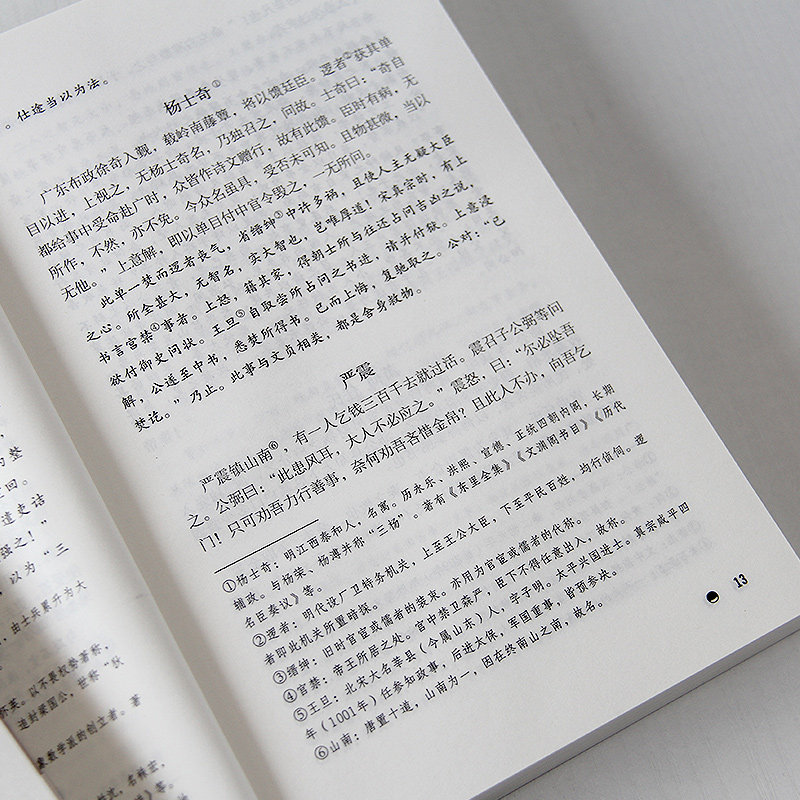 。仕途当以为法。
杨士奇①
广东布政徐奇入觐，载岭南藤簟，将以馈廷臣。逻者②获其单
目以进，上视之，无杨士奇名，乃独召之，问故。士奇曰：“奇自
都给事中受命赴广时，众皆作诗文赠行，故有此馈。臣时有病，无
所作，不然，亦不免。今众名虽具，受否未可知。且物甚微，当以
无他。”上意解，即以单目付中官令毁之，一无所问。
此单一焚而逻者丧气，省缙绅③中许多祸，且使人主无疑大臣
之心。所全甚大，无智名，实大智也，岂唯厚道！宋真宗时，有上
书言宫禁④事者。上怒，籍其家，得朝士所与往还占问吉凶之说，
欲付御史问状。王旦⑤自取尝所占问之书进，请并付狱。上意浸
解，公遂至中书，悉焚所得书。已而上悔，复驰取之。公对：“已
焚讫。”乃止。此事与文贞相类，都是舍身救物。
严震
严震镇山南⑥，有一人乞钱三百千去就过活。震召子公弼等问
之。公弼曰：“此患风耳，大人不必应之。”震怒，曰：“尔必坠吾
门！只可劝吾力行善事，奈何劝吾吝惜金帛？且此人不办，向吾乞
①杨士奇：明江西泰和人，名寓。历永乐、洪熙、宣德、正统四朝内阁，长期
辅政。与杨荣、杨溥并称“三杨”。著有《东里全集》《文渊阁书目》《历代
名臣奏议》等。
②逻者：明代设厂卫特务机关，上至王公大臣，下至平民百姓，均行侦伺。逻
者即此机关所置暗探。
③缙绅：旧时官宦或儒者的装束。亦用为官宦或儒者的代称。
④宫禁：帝王所居之处。宫中禁卫森严，臣下不得任意出入，故称。
⑤王旦：北宋大名莘县（今属山东）人，字子明。太平兴国进士。真宗咸平四
年（1001年）任参知政事，后进太保，军国重事，皆预参决。
⑥山南：唐置十道，山南为一，因在终南山之南，故名。
13
为整
回。
道吏诘
强之！”
以为“三
由士兵累升为大
英。以不畏权势著称，
追封梁国公，世称“狄
象数学派的创立者。著